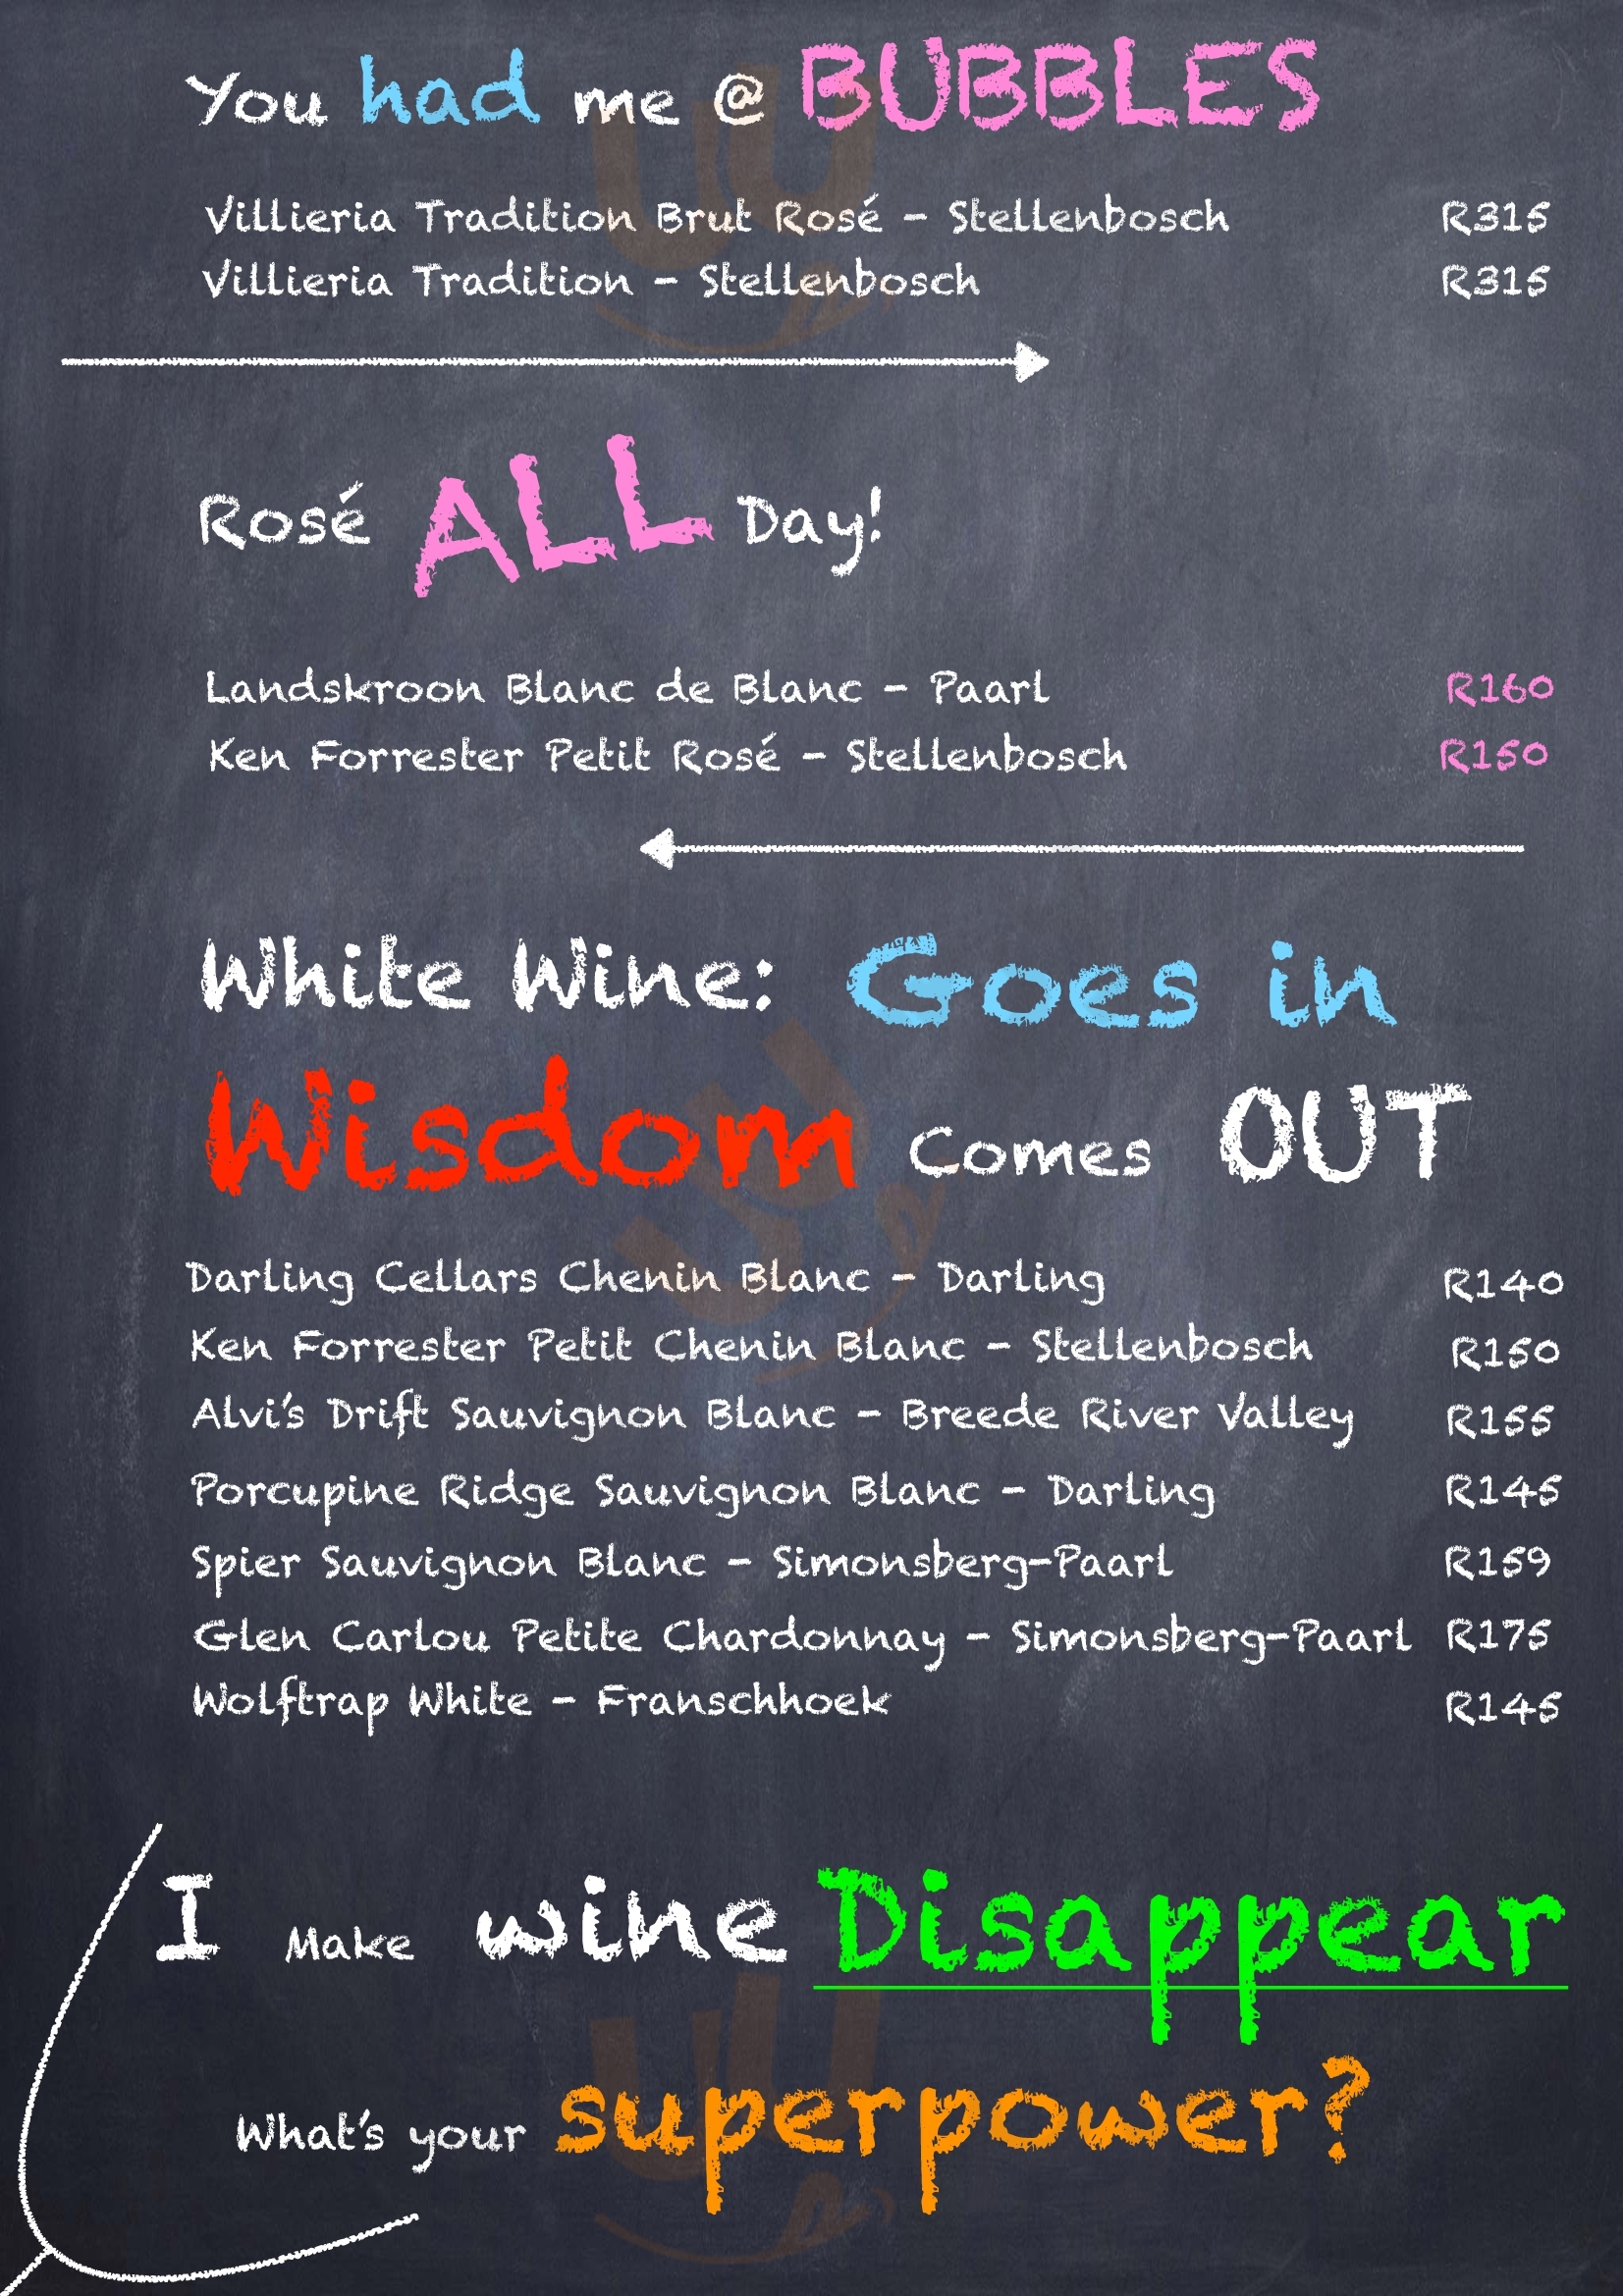 You had me @ BUBBLES
Villieria Tradition Brut Rosé - Stellenbosch R315
Villieria Tradition - Stellenbosch R315
Rosé ALL Day!
Landskroon Blanc de Blanc - Paarl R160
Ken Forrester Petit Rosé - Stellenbosch R150
White Wine: Goes in
Wisdom Comes OUT
Darling Cellars Chenin Blanc - Darling R140
Ken Forrester Petit Chenin Blanc - Stellenbosch R150
Alvi's Drift Sauvignon Blanc - Breede River Valley R155
Porcupine Ridge Sauvignon Blanc - Darling R145
Spier Sauvignon Blanc - Simonsberg-Paarl R159
Glen Carlou Petite Chardonnay - Simonsberg-Paarl R175
Wolftrap White - Franschhoek R145
I Make wine Disappear
What's your superpower?